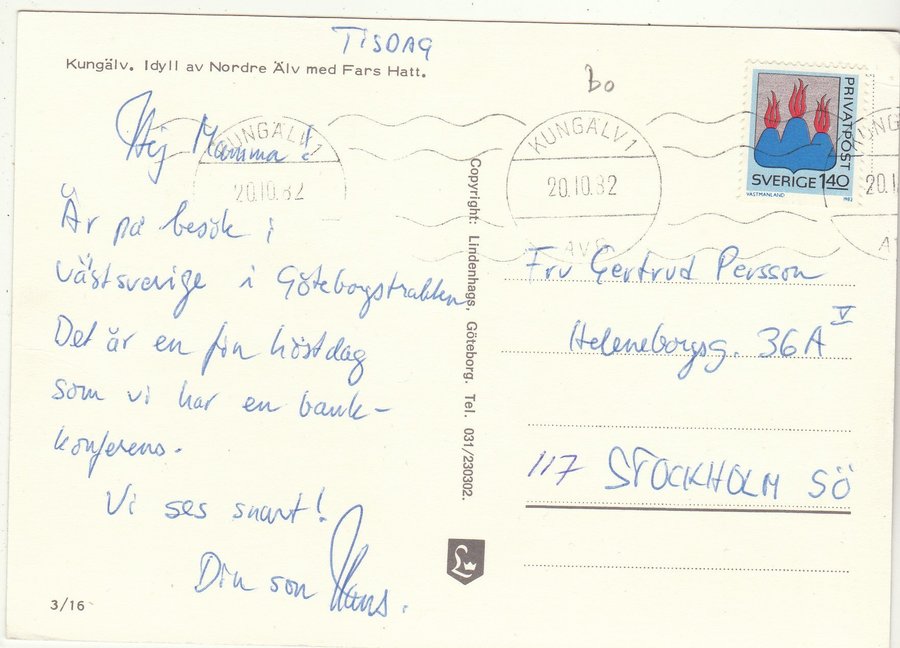 TISDAG
Kungälv. Idyll av Nordre Älv med Fars Hatt.
Hej Mamma!
Är på besök i
Västsverige i Göteborgstrakten
Det är en fin höstdag
som vi har en bank-
konferens.
Vi ses snart!
Din son Hans.
3/16
Copyright: Lindenhags, Göteborg. Tel. 031/230302.
KUNGÄLV 1
20.10.82
bo
KUNGÄLV 1
20.10.82
PRIVATPOST
SVERIGE 140
VÄSTMANLAND 1982
KUNG
20.1
Fru Gertrud Persson
Heleneborgsg. 36A V
117 STOCKHOLM SÖ
L